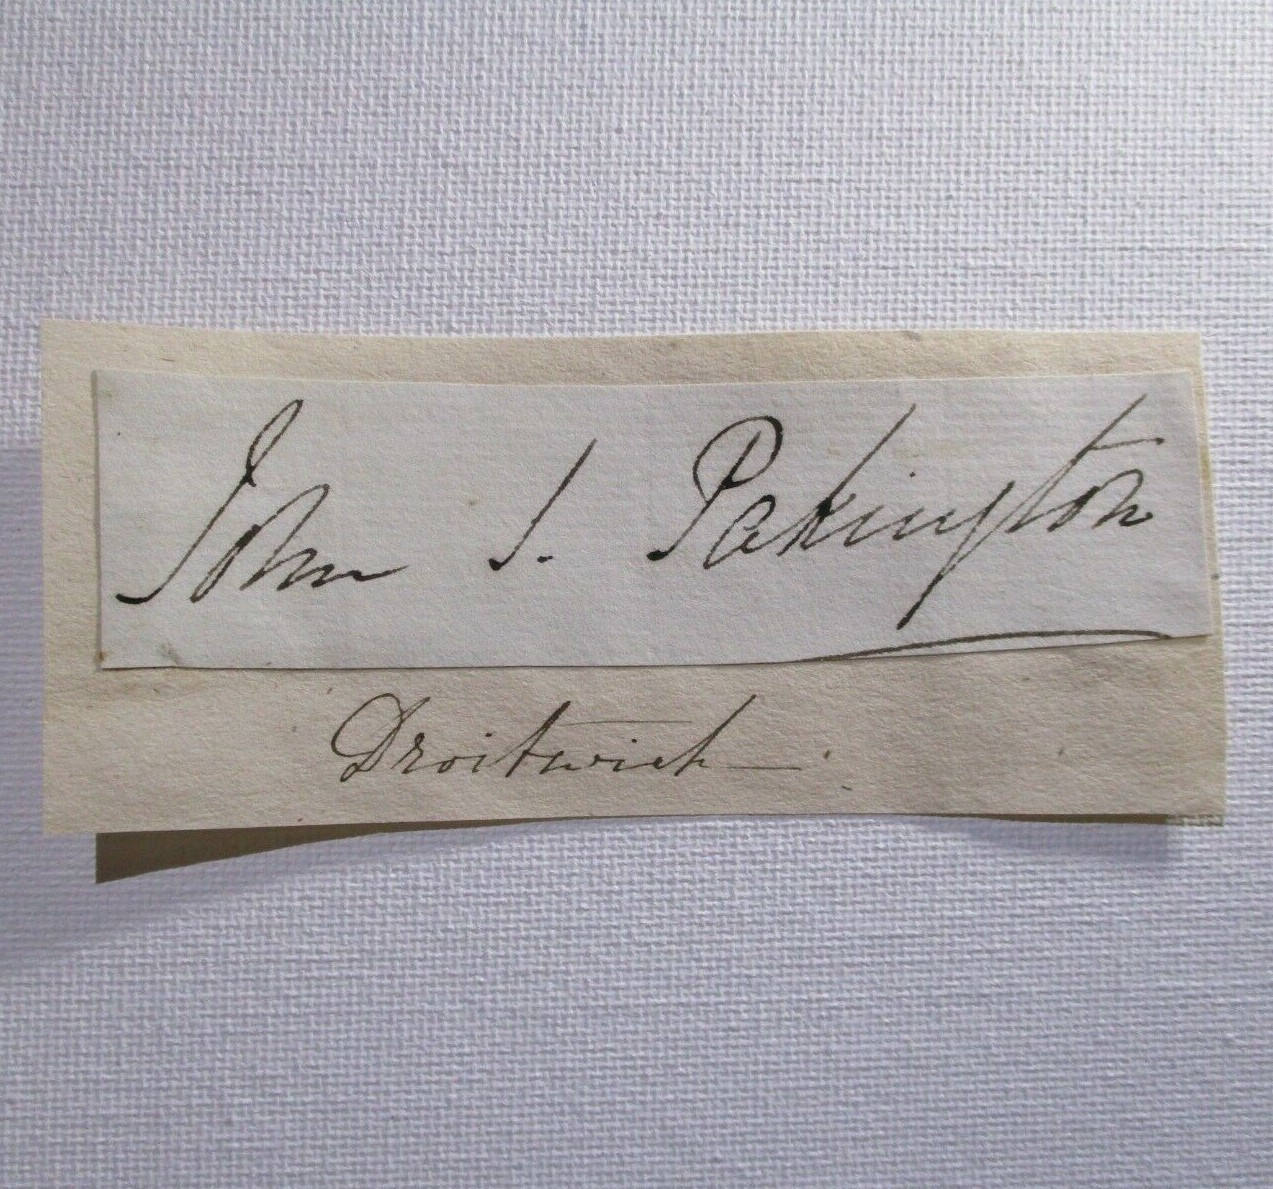 John S. Pakington
Droitwich